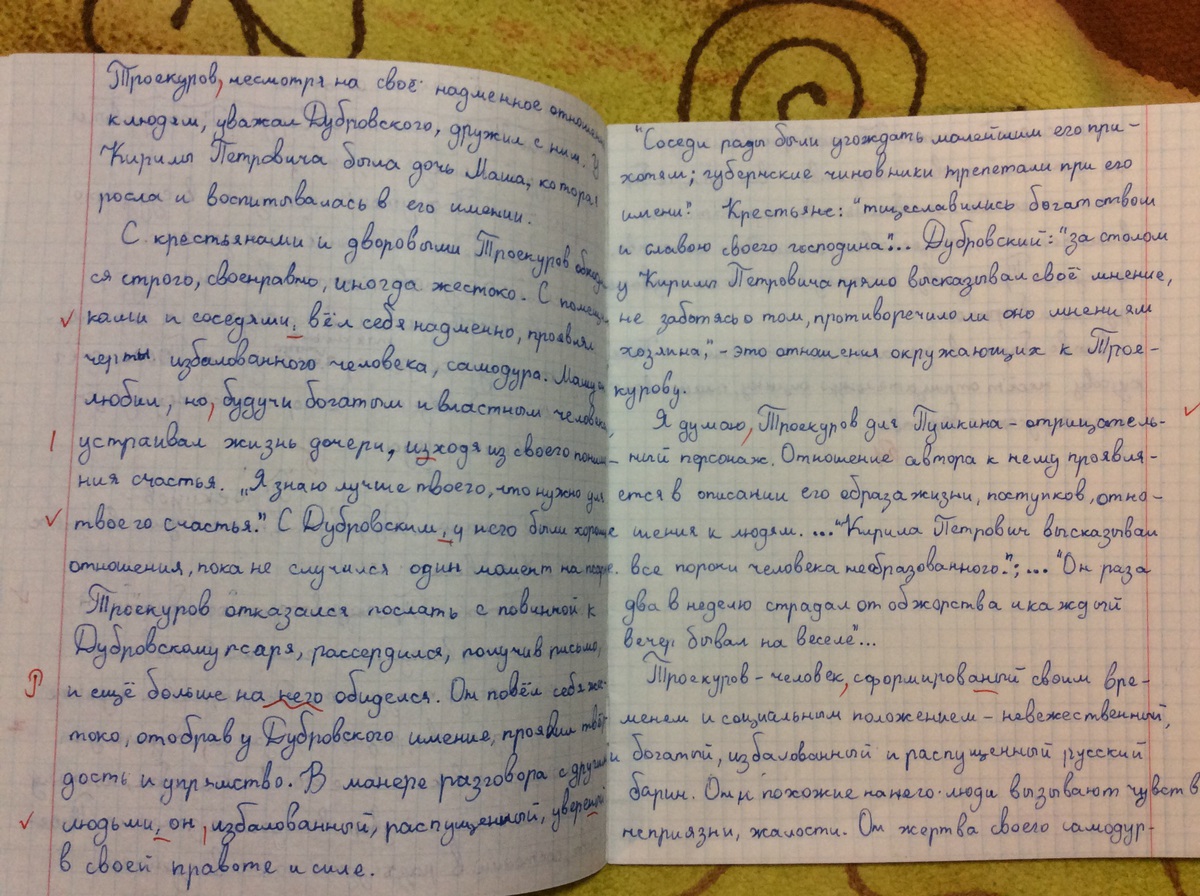 Троекуров, несмотря на своё надменное отношени
к людям, уважал Дубровского, дружил с ним. У
Кирилы Петровича была дочь Маша, которая
росла и воспитывалась в его имении.
С крестьянами и дворовыми Троекуров обходи
ся строго, своенравно, иногда жестоко. С помещи
ками и соседями, вёл себя надменно, проявлял
черты избалованного человека, самодура. Машу он
любил, но, будучи богатым и властным человеком,
устраивал жизнь дочери, изходя из своего понима-
ния счастья. „Я знаю лучше твоего, что нужно для
твоего счастья." С Дубровским, у него были хорошие
отношения, пока не случился один момент на псарне.
Троекуров отказался послать с повинной к
Дубровскому псаря, рассердился, получив письмо,
и ещё больше на него обиделся. Он повёл себя жес-
токо, отобрав у Дубровского имение, проявил твёр-
дость и упрямство. В манере разговора с другими
людьми, он, избалованный, распущенный, увереный
в своей правоте и силе.
"Соседи рады были угождать малейшим его при-
хотям; губернские чиновники трепетали при его
имени". Крестьяне: "тщеславились богатством
и славою своего господина"... Дубровский: "за столом
у Кирилы Петровича прямо высказывал своё мнение,
не заботясь о том, противоречило ли оно мнениям
хозяина," - это отношения окружающих к Трое-
курову.
Я думаю, Троекуров для Пушкина - отрицатель-
ный персонаж. Отношение автора к нему проявля-
ется в описании его образа жизни, поступков, отно-
шения к людям. ... "Кирила Петрович высказывал
все пороки человека необразованного."; ... "Он раза
два в неделю страдал от обжорства и каждый
вечер бывал на веселе"...
Троекуров - человек, сформированый своим вре-
менем и социальным положением - невежественный,
и богатый, избалованный и распущенный русский
барин. Он и похожие на него люди вызывают чувств в
неприязни, жалости. Он жертва своего самодур-